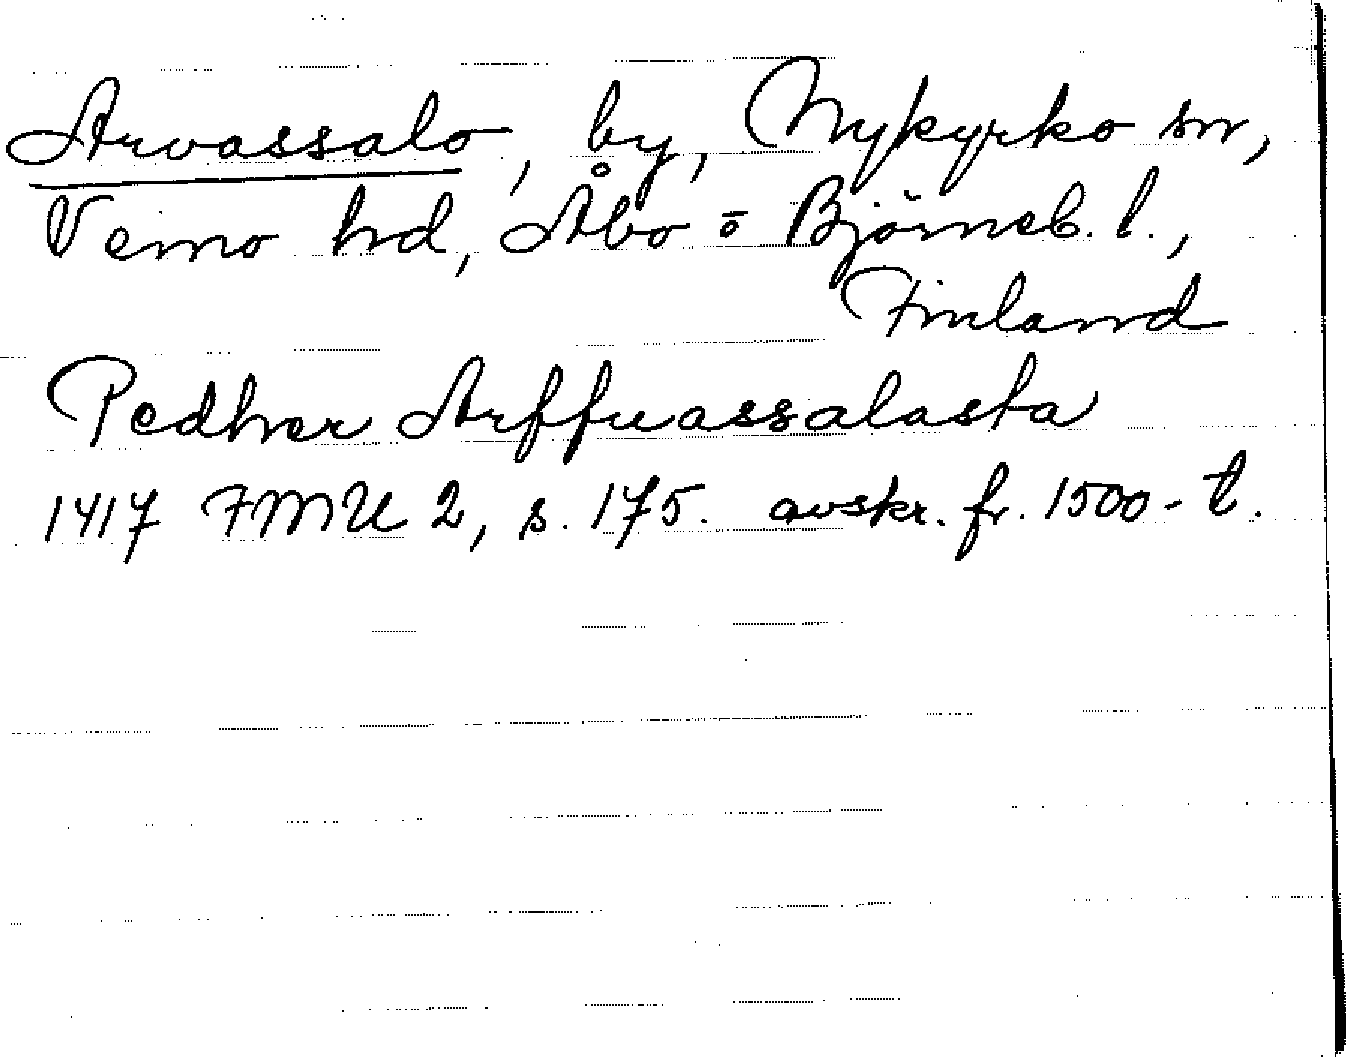 Arvassalo, by, Nykyrko sn,
Vemo hd, Åbo o Björneb. l.,
Finland
Pedher Arffuassalasta
1417 FMU 2, s. 175. avskr. fr. 1500-t.